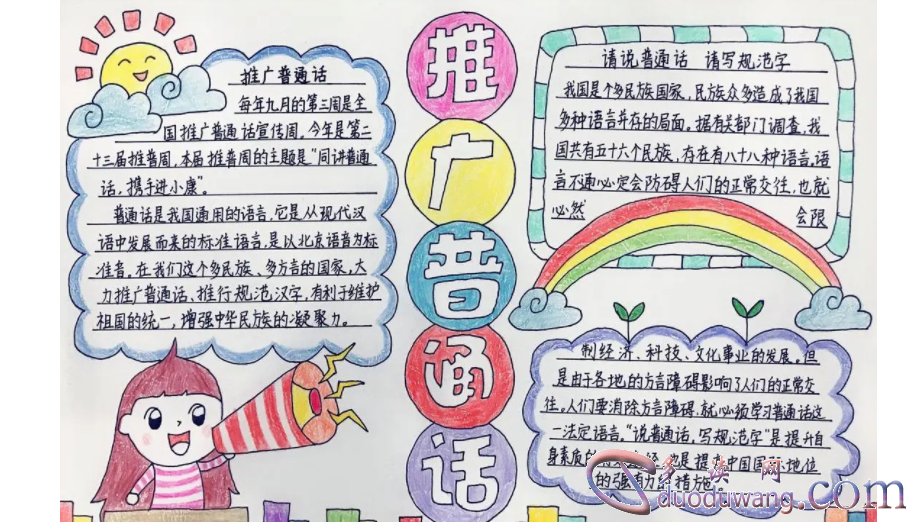 推广普通话
推广普通话
每年九月的第三周是全
国推广普通话宣传周,今年是第二
十三届推普周,本届推普周的主题是“同讲普通
话,携手进小康”。
普通话是我国通用的语言,它是从现代汉
语中发展而来的标准语言,是以北京语音为标
准音,在我们这个多民族、多方言的国家,大
力推广普通话、推行规范汉字,有利于维护
祖国的统一,增强中华民族的凝聚力。
请说普通话 请写规范字
我国是个多民族国家,民族众多造成了我国
多种语言并存的局面。据有关部门调查,我
国共有五十六个民族,存在有八十八种语言。语
言不通必定会防碍人们的正常交往,也就
必然 会限
制经济、科技、文化事业的发展,但
是由于各地的方言障碍影响了人们的正常交
往。人们要消除方言障碍,就必须学习普通话这
一法定语言。“说普通话,写规范字”是提升自
身素质的 是提 中国国际地位
的强有力 措施。
多读网
duoduwang.com